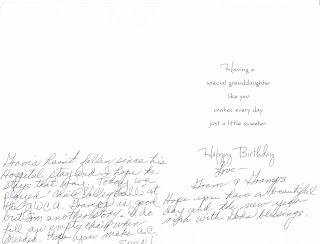 Having a
special granddaughter
like you
makes every day
just a little sweeter.
Happy Birthday
Love—
Gram & Gramps
Hope you have a beautiful
day and the new year
with Gods blessings.
Gramps hasn't fallen since his
Hospital stay and I hope he
stays that way. Today we
played "Chair Volley Ball" at
the YWCA. Gramps is good
but I'm another story. I do
fill an empty chair when
needed. Hope you make a.c.